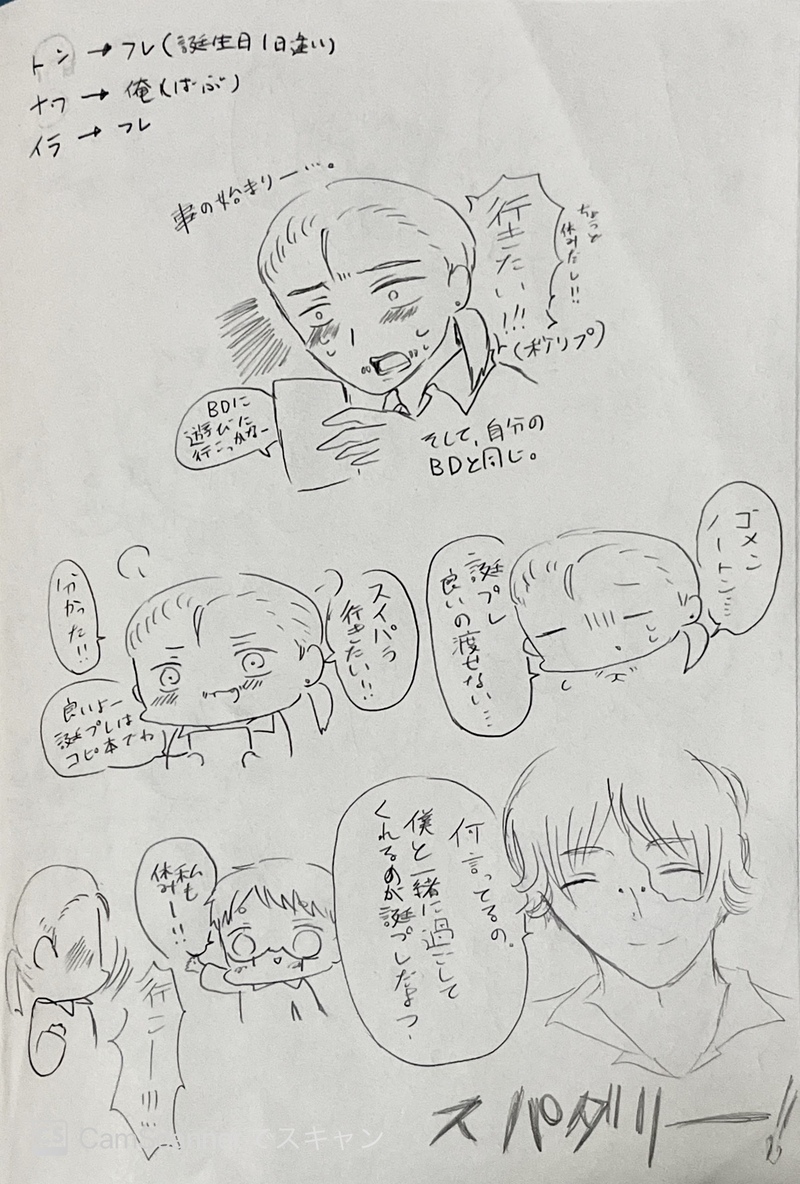 トン→フレ(誕生日1日違い)
ナワ→俺(ばぶ)
イラ→フレ
事の始まりー…。
行きたい!!!
ちょっと
休みだし!!
(ポケリプ)
BDに
遊びに
行こっかなー
そして、自分の
BDと同じ。
ゴメン
ノートン…
誕プレ
良いの渡せない…
スイパラ
行きたい!!
分かった!!
良いよー
誕プレは
コピ本でわ
何言ってるの。
僕と一緒に過ごして
くれるのが誕プレだよっ
私も
休みー!!
行こー!!!
スパダリー!!
CamScannerでスキャン